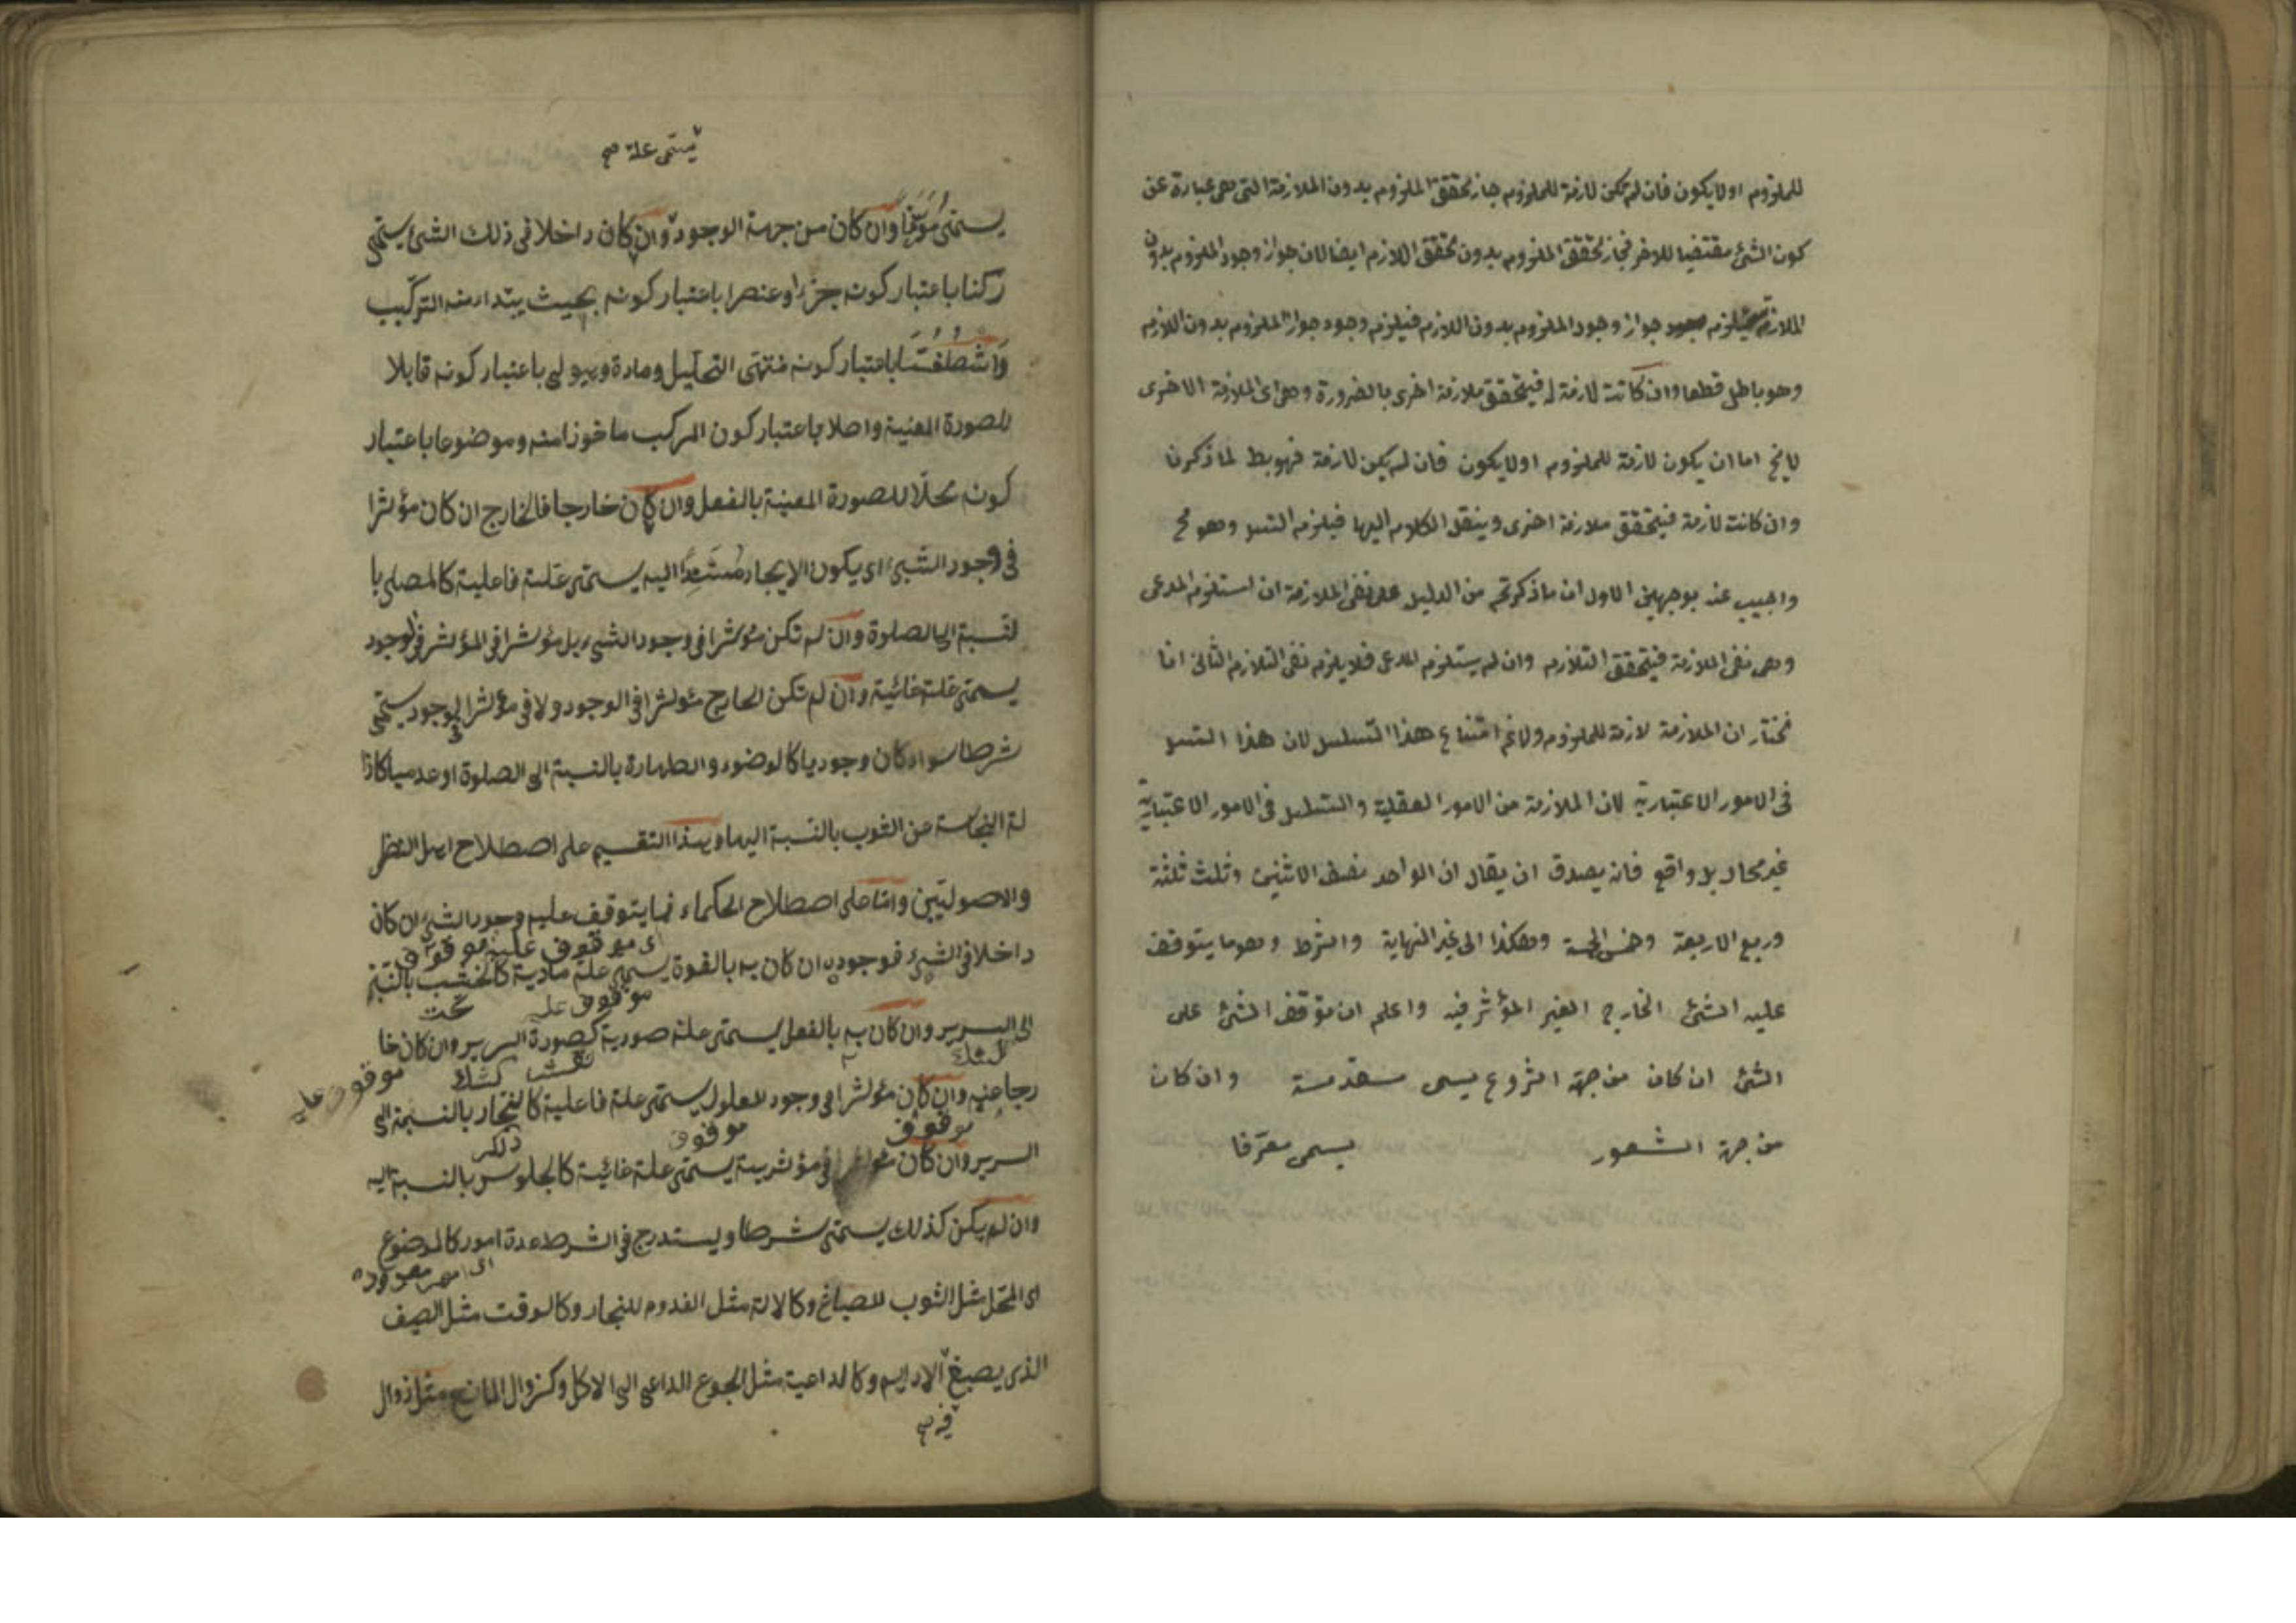 للملزوم اولايكون فان لم تكن لازمة للملزوم جاز تحقق الملزوم بدون الملازمة التى هى عبارة عن
كون الشئ مقتضيا للاخر فجاز تحقق الملزوم بدون تحقق اللازم ايضا لان جواز وجود الملزوم بدون
الملازمة يستلزم جواز وجود الملزوم بدون اللازم فيلزم وجود جواز الملزوم بدون اللازم
وهو باطل قطعا وان كانت لازمة له فيتحقق ملازمة اخرى بالضرورة وهى اى الملازمة الاخرى
لا يخ اما ان يكون لازمة للملزوم اولايكون فان لم يكن لازمة فهو بط لما ذكرنا
وان كانت لازمة فيتحقق ملازمة اخرى وينقل الكلام اليها فيلزم التسـ وهو مح
واجيب عنه بوجهين الاول ان ما ذكرتم من الدليل على نفى الملازمة ان استلزم المدعى
وهى نفى الملازمة فيتحقق التلازم وان لم يستلزم المدعى فلا يلزم نفى التلازم الثانى انا
نختار ان الملازمة لازمة للملزوم ولانم امتناع هذا التسلسل لان هذا التسـ
فى الامور الاعتبارية لان الملازمة من الامور العقلية والتسلسل فى الامور الاعتبارية
غير محال بل واقع فانه يصدق ان يقال ان الواحد نصف الاثنين وثلث ثلثة
وربع الاربعة وخمس الخمسة وهكذا الى غير النهاية والشرط وهو ما يتوقف
عليه الشئ الخارج الغير المؤثر فيه واعلم ان توقف الشئ على
الشئ ان كان من جهة الشروع يسمى مقدمة وان كان
من جهة الشعور يسمى معرفا
يسمى علة صح
يسمى معرفا وان كان من جهة الوجود وان كان داخلا فى ذلك الشئ يسمى
ركنا باعتبار كونه جزءا وعنصرا باعتبار كونه بحيث يبتداء منه التركيب
واسطقسا باعتبار كونه منتهى التحليل ومادة وهيولى باعتبار كونه قابلا
للصورة المعنية واصلا باعتبار كون المركب ماخوذا منه وموضوعا باعتبار
كونه محلا للصورة المعينة بالفعل وان كان خارجا فالخارج ان كان مؤثرا
فى وجود الشئ اى يكون الايجاد مستندا اليه يسمى علة فاعلية كالمصلى با
لنسبة الى الصلوة وان لم تكن مؤثرا فى وجود الشئ بل مؤثرا فى المؤثر فى الوجود
يسمى علة غائية وان لم تكن الخارج مؤثرا فى الوجود ولا فى مؤثر الوجود يسمى
شرطا سواء كان وجوديا كالوضوء والطهارة بالنسبة الى الصلوة او عدميا كازا
لة النجاسة عن الثوب بالنسبة اليها وهذا التقسيم على اصطلاح اهل النظر
والاصوليين واما على اصطلاح الحكماء فما يتوقف عليه وجود الشئ ان كان
اى موقوف عليه موقوف
داخلا فى الشئ فوجوده ان كان به بالقوة يسمى علة مادية كالخشب بالنسبة
موقوف عليه تحت
الى السرير وان كان به بالفعل يسمى علة صورية كصورة السرير وان كان خا
موقوف عليه
رجا عنه وان كان مؤثرا فى وجود المعلول يسمى علة فاعلية كالنجار بالنسبة الى
موقوف موقوف ذلكر
السرير وان كان مؤثرا فى مؤثريته يسمى علة غائية كالجلوس بالنسبة اليه
وان لم يكن كذلك يسمى شرطا ويستدرج فى الشرط عدة امور كالموضوع
اى امور معدودة
اى المحل مثل الثوب للصباغ وكالالة مثل القدوم للنجار وكالوقت مثل الصيف
الذى يصبغ الاديم وكالداعية مثل الجوع الداعى الى الاكل وكزوال المانع مثل زوال
فيه صح